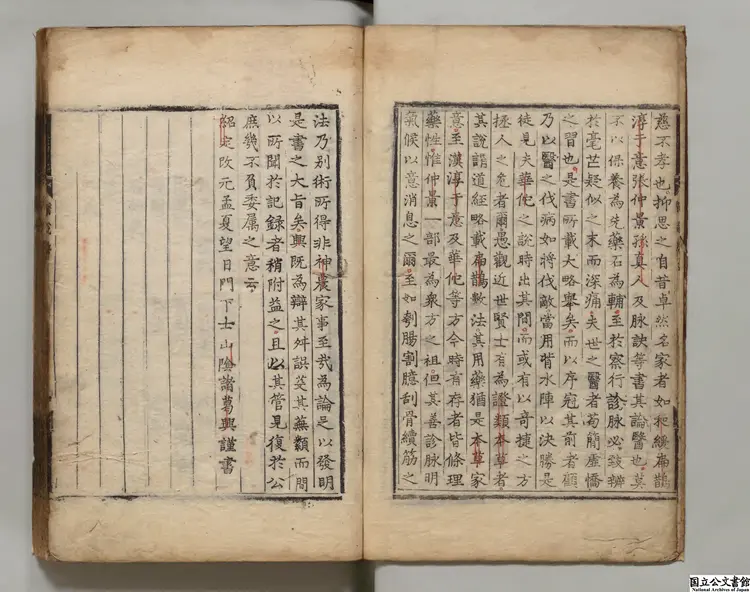 慈不孝也抑思之自昔卓然名家者如和緩扁鵲
淳于意張仲景孫真人及脉訣等書其論醫也莫
不以保養為先藥石為輔至於察行診脉必致辨
於毫芒疑似之末而深痛夫世之醫者苟簡虛憍
之習也是書所載大略舉矣而以序冠其前者顧
乃以醫之伐病如將伐敵當用背水陣以決勝是
徒見夫華佗之說時出其間而或有以奇捷之方
拯人之危者爾愚觀近世賢士有為證類本草者
其說謂道經略載扁鵲數法其用藥猶是本草家
意至漢淳于意及華佗等方今時有存者皆條理
藥性惟仲景一部最為衆方之祖但其善診脉明
氣候以意消息之爾至如刳腸割臆刮骨續筋之
法乃别術所得非神農家事至哉為論足以發明
是書之大旨矣興既為辯其舛誤芟其蕪纇而間
以所聞於記録者稍附益之且以其管見復於公
庶幾不負委屬之意云
紹定改元孟夏望日門下士山陰諸葛興謹書
国立公文書館
National Archives of Japan